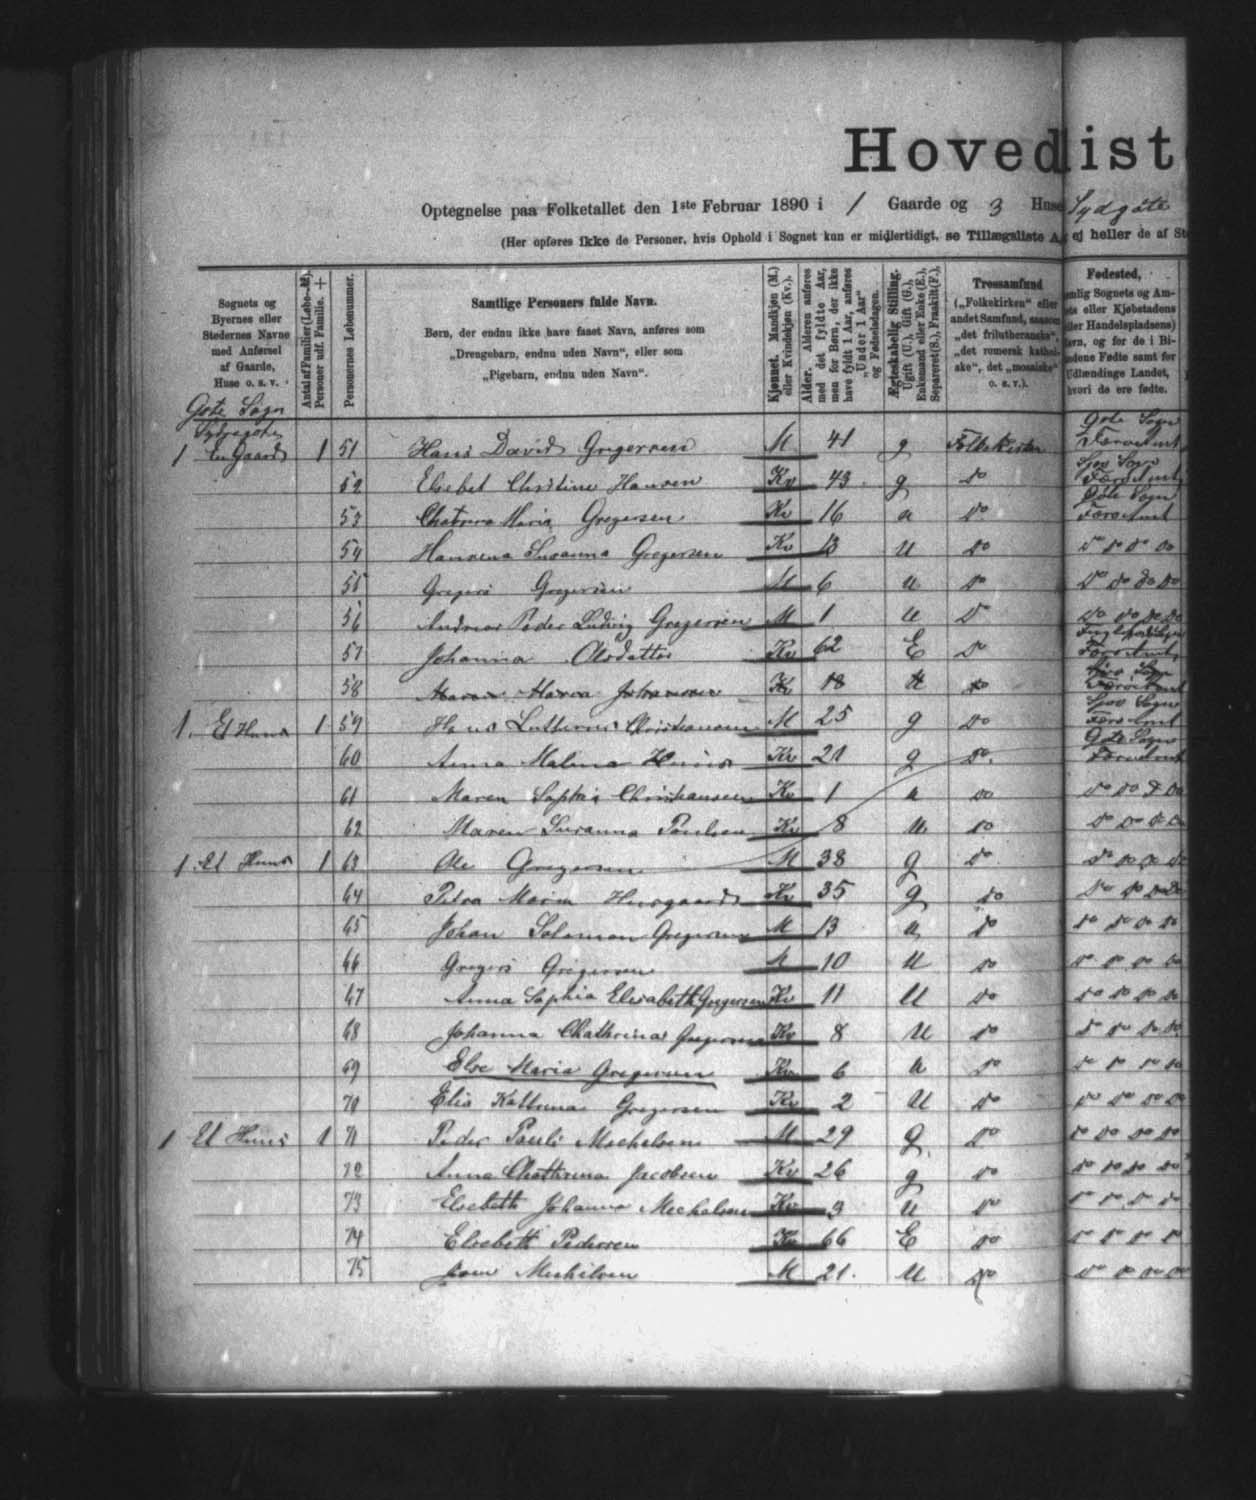 Hovedliste
Optegnelse paa Folketallet den 1ste Februar 1890 i 1 Gaarde og 3 Huse Sydgöte
(Her opføres ikke de Personer, hvis Ophold i Sognet kun er midlertidigt, se Tillægsliste A, ej heller de af
Sognets og Byernes eller Stedernes Navne med Anførsel af Gaarde, Huse o. s. v.
Antal af Familier (Løbe-№). Personer udf. Familie. +
Personernes Løbenummer.
Samtlige Personers fulde Navn.
Børn, der endnu ikke have faaet Navn, anføres som
„Drengebarn, endnu uden Navn“, eller som
„Pigebarn, endnu uden Navn“.
Kjønnet. Mandkjøn (M.) eller Kvindekjøn (Kv.).
Alder. Alderen anføres med det fyldte Aar, men for Børn, der ikke have fyldt 1 Aar, anføres „Under 1 Aar“ og Fødselsdagen.
Ægteskabelig Stilling. Ugift (U.), Gift (G.), Enkemand eller Enke (E.), Separeret (S.), Fraskilt (F.).
Trossamfund („Folkekirken“ eller andet Samfund, saasom „det frilutheranske“, „det romersk katholske“, det „mosaiske“ o. s. v.).
Fødested,
Göte Sogn
1 En Gaard 1 51 Hans David Gregersen M 41 g Folkekirken Göte Sogn Færø Amt
52 Elsebet Christine Hansen Kv 43 g do Færø Amt
53 Maria Gregersen Kv 16 u do Göte Sogn Færø Amt
54 Hansena Susanna Gregersen Kv 13 U do do do do do
55 Gregers Gregersen M 6 u do do do do do
56 Andreas Peder Ludvig Gregersen M 1 u do do do do do
57 Johanna Olsdatter Kv 62 E do Færø Amt
58 Maria Kv 18 U do Færø Amt
1 Et Huus 1 59 Hans Christiansen M 25 g do Sogn Færø Amt
60 Anna Malena Kv 21 g do Göte Sogn Færø Amt
61 Maren Sophia Christiansen Kv 1 u do do do do do
62 Maren Susanna Poulsen Kv 8 U do do do do do
1 Et Huus 1 63 Ole Gregersen M 38 g do do do do do
64 Petra Maria Kv 35 g do do do do do
65 Johan Solomon Gregersen M 13 u do do do do do
66 Gregers Gregersen M 10 U do do do do do
67 Anna Sophia Elisabeth Gregersen Kv 11 U do do do do do
68 Johanna Chathrina Gregersen Kv 8 U do do do do do
69 Else Maria Gregersen Kv 6 u do do do do do
70 Elia Kathrina Gregersen Kv 2 U do do do do do
1 Et Huus 1 71 Peder Pauli Michelsen M 29 g do do do do do
72 Anna Chathrina Jacobsen Kv 26 g do do do do do
73 Elsebeth Johanna Michelsen Kv 3 u do do do do do
74 Elsebeth Pedersen Kv 66 E do do do do do
75 Michelsen M 21 U do do do do do